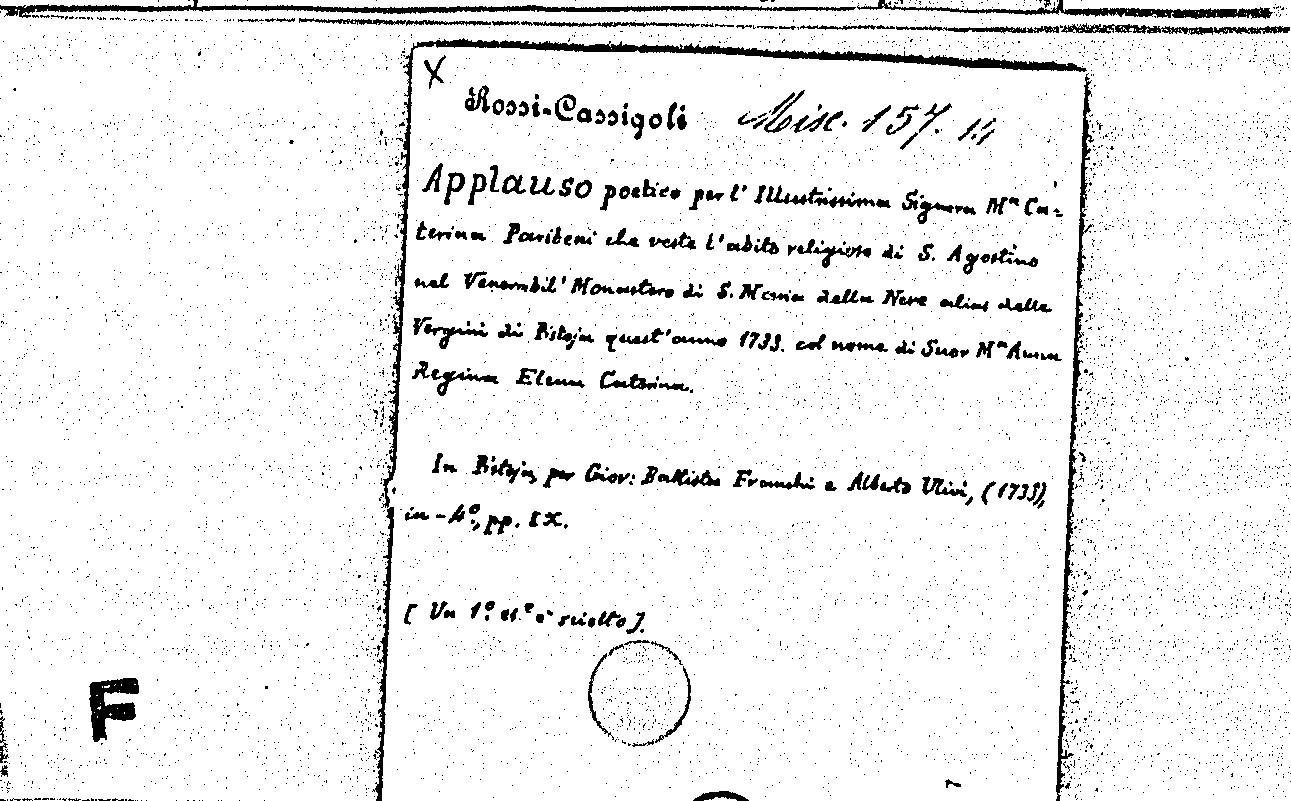 X
Rossi-Cassigoli Misc. 157. 14
Applauso poetico per l' Illustrissima Signora Mª Ca-
terina Paribeni che veste l'abito religioso di S. Agostino
nel Venerabil' Monastero di S. Maria della Neve alias delle
Vergini di Pistoja quest'anno 1733. col nome di Suor Mª Anna
Regina Elena Caterina.
In Pistoja, per Giov: Battista Franchi e Alberto Ulivi, (1733),
in-4º, pp. IX.
[ Un 1º es.º è sciolto ].
F